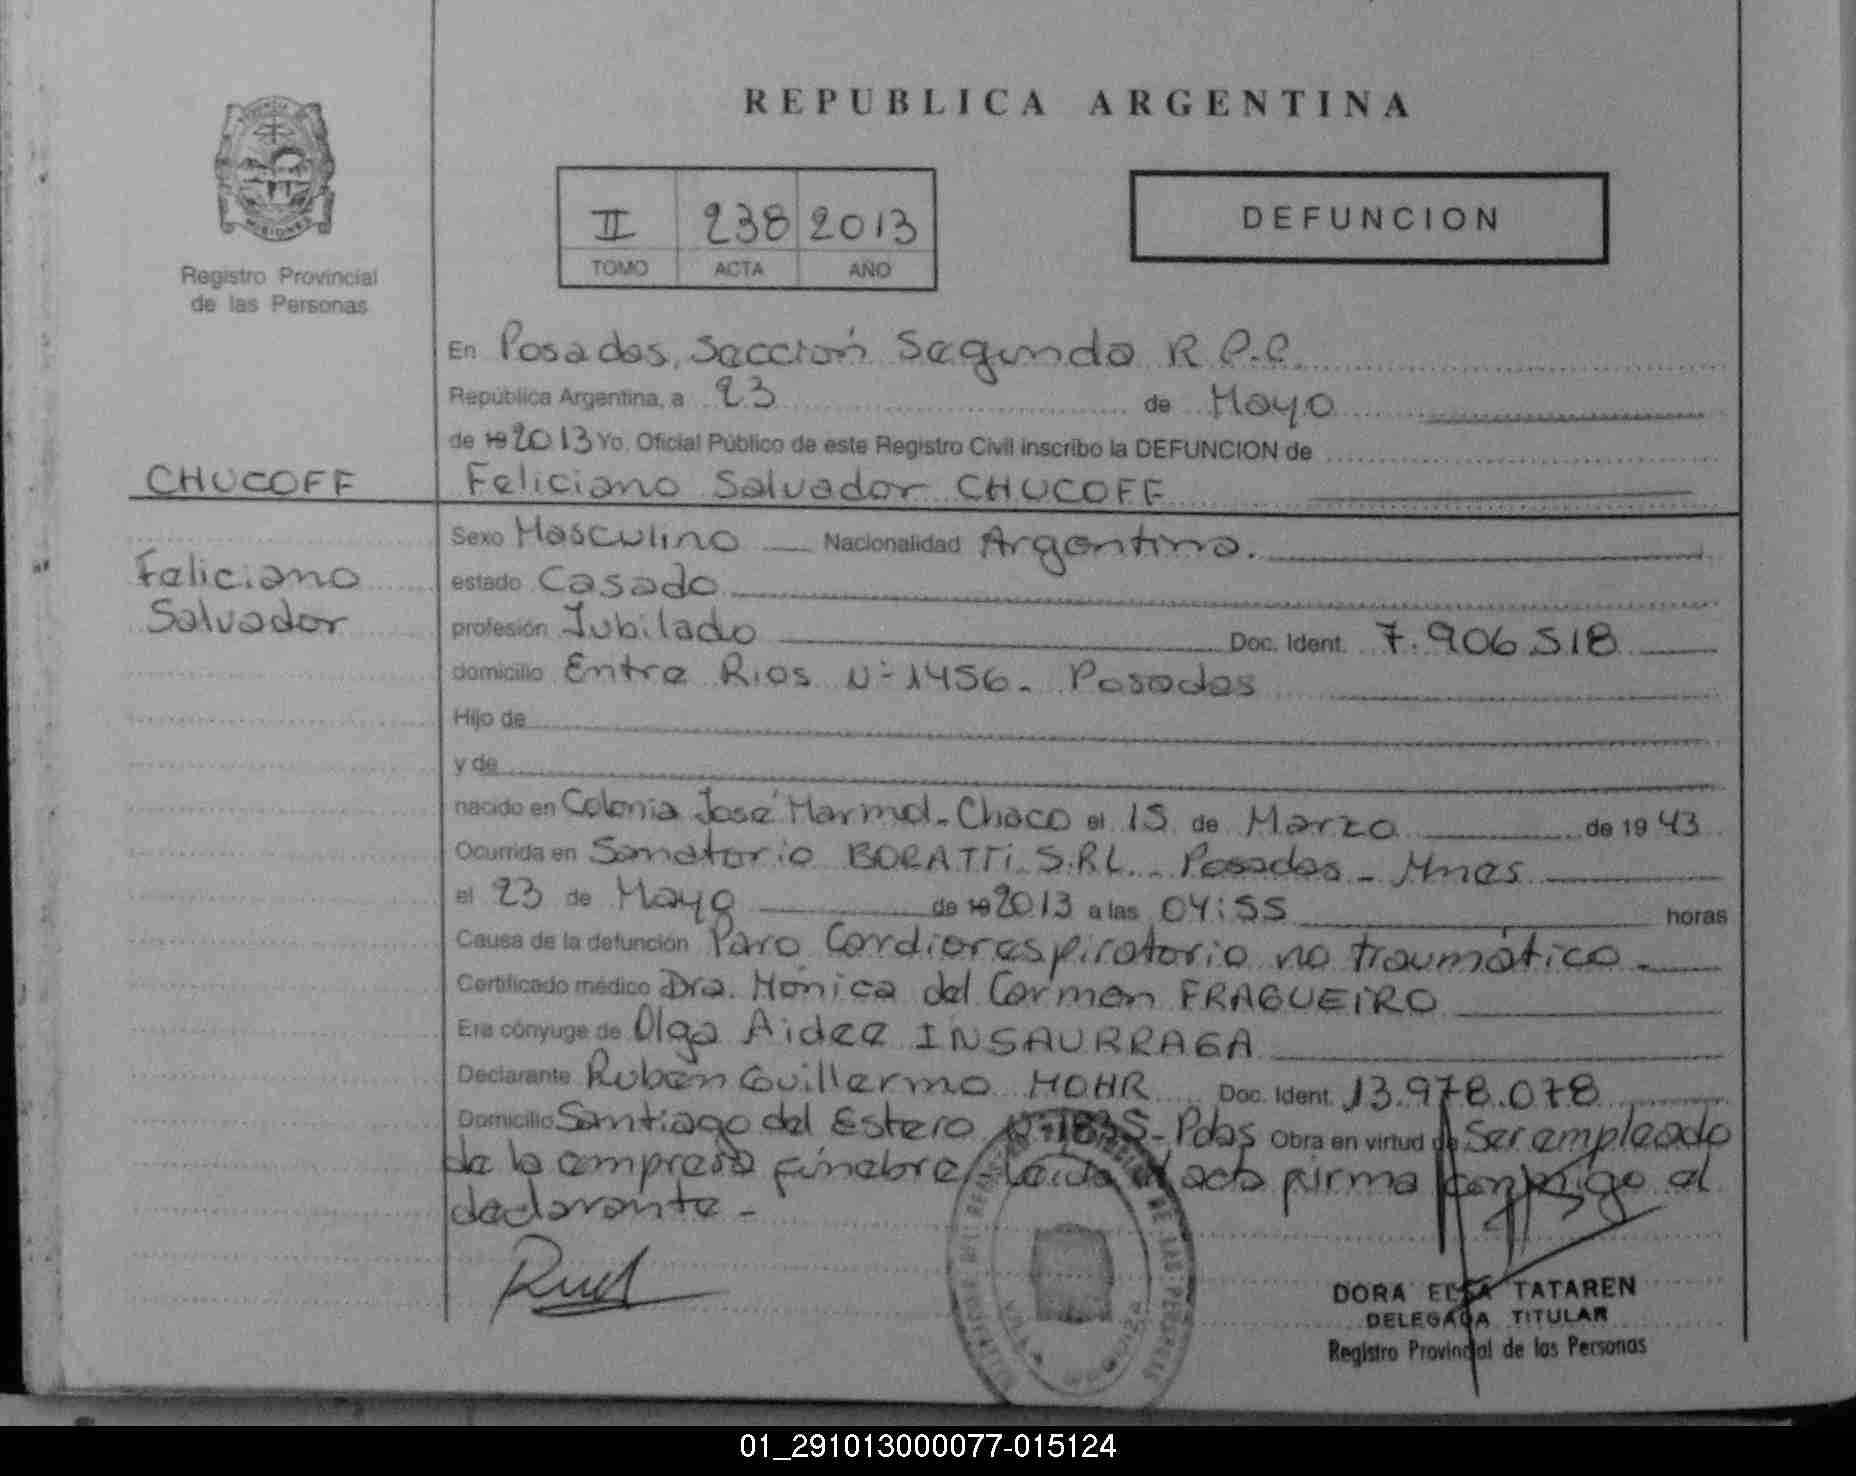 REPUBLICA ARGENTINA
II 238 2013
TOMO ACTA AÑO
DEFUNCION
Registro Provincial
de las Personas
En Posadas, Sección Segunda R.P.P.
República Argentina, a 23 de Mayo
de 19 2013 Yo. Oficial Público de este Registro Civil inscribo la DEFUNCION de
CHUCOFF
Feliciano Salvador CHUCOFF
Feliciano
Salvador
Sexo Masculino Nacionalidad Argentina.
estado Casado
profesión Jubilado Doc. Ident. 7.906.518
domicilio Entre Rios Nº 1456. Posadas
Hijo de
y de
nacido en Colonia José Marmol - Chaco el 15 de Marzo de 19 43
Ocurrida en Sanatorio BORATTI S.R.L. - Posadas - Mnes
el 23 de Mayo de 19 2013 a las 04:55 horas
Causa de la defunción Paro Cardiorespiratorio no traumático.
Certificado médico Dra. Mónica del Carmen FRAGUEIRO
Era cónyuge de Olga Aidee INSAURRAGA
Declarante Ruben Guillermo MOHR Doc. Ident. 13.978.078
Domicilio Santiago del Estero Nº 1835 - Pdas Obra en virtud de Ser empleado
de la empresa fúnebre leida el acta firma conmigo el
declarante -
DORA ELSA TATAREN
DELEGADA TITULAR
Registro Provincial de las Personas
01_291013000077-015124